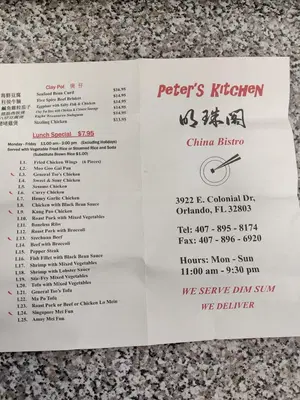 Clay Pot
Seafood Bean Curd $14.95
Five Spice Beef Brisket
Eggplant with Salty Fish & Chicken
Sizzling Chicken
Lunch Special $7.95
Monday - Friday 11:00 am - 3:00 pm (Excluding Holidays)
Served with Vegetable Fried Rice or Steamed Rice and Soup
(Substitute Brown Rice $1.00)
L1. Fried Chicken Wings (6 Pieces)
L2. Moo Goo Gai Pan
L3. General Tso's Chicken
L4. Sweet & Sour Chicken
L5. Sesame Chicken
L6. Curry Chicken
L7. Honey Garlic Chicken
L8. Chicken with Black Bean Sauce
L9. Kung Pao Chicken
L10. Roast Pork with Mixed Vegetables
L11. Boneless Ribs
L12. Roast Pork with Broccoli
L13. Szechuan Beef
L14. Beef with Broccoli
L15. Pepper Steak
L16. Fish Fillet with Black Bean Sauce
L17. Shrimp with Mixed Vegetables
L18. Shrimp with Lobster Sauce
L19. Stir-Fry Mixed Vegetables
L20. Tofu with Mixed Vegetables
L21. General Tso's Tofu
L22. Ma Po Tofu
L23. Roast Pork or Beef or Chicken Lo Mein
L24. Singapore Mei Fun
L25. Amoy Mei Fun
Peter's Kitchen
明珠閣
China Bistro
3922 E. Colonial Dr,
Orlando, FL 32803
Tel: 407 - 895 - 8174
Fax: 407 - 896 - 6920
Hours: Mon - Sun
11:00 am - 9:30 pm
WE SERVE DIM SUM
WE DELIVER